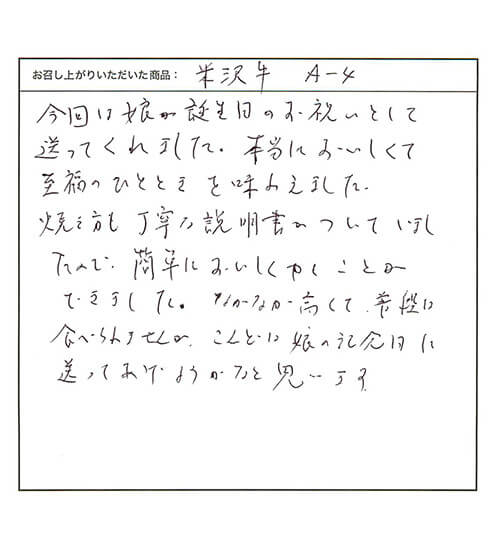 お召し上がりいただいた商品： 米沢牛 A-4
今回は娘が誕生日のお祝いとして
送ってくれました。本当においしくて
至福のひとときを味わえました.
焼き方も丁寧な説明書がついていまし
たので、簡単においしくやくことが
できました。なかなか高くて、普段は
食べられませんが、こんどは娘の記念日に
送ってあげようかなと思います